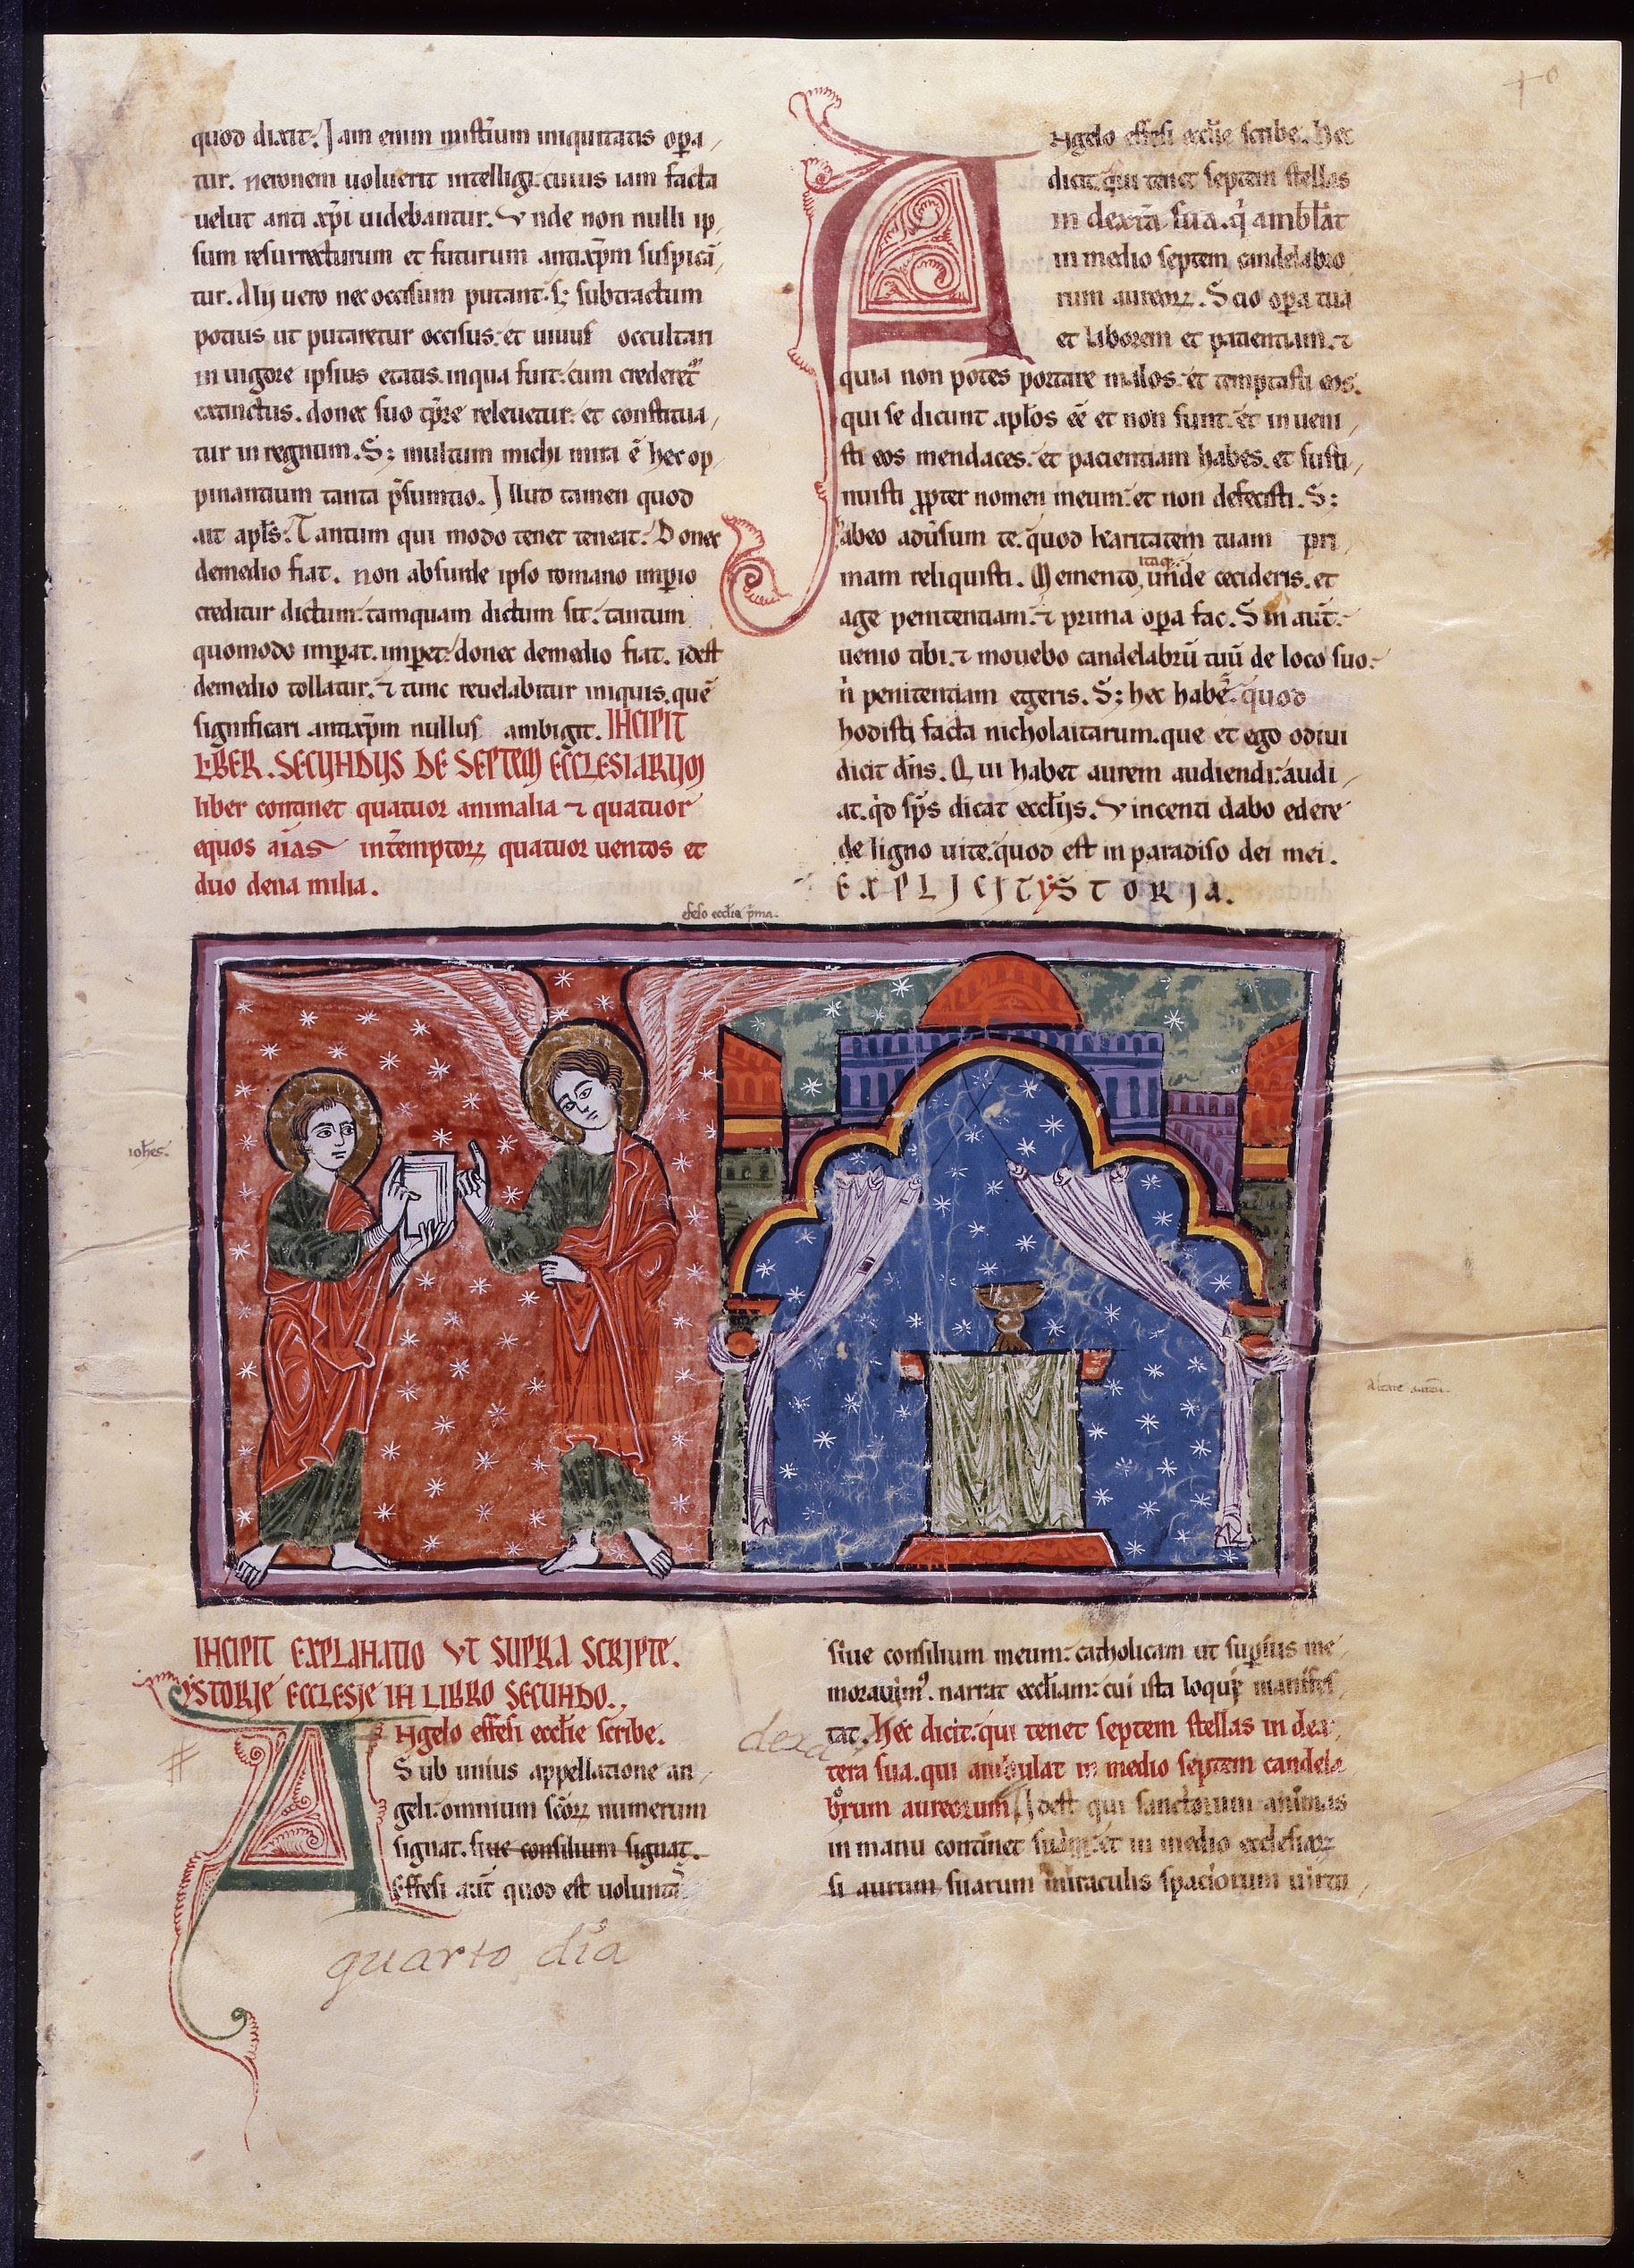 quod dixit: Jam enim mist̄ium iniquitatis opa/
tur. Neronem uoluerit intelligi: cuius iam facta
uelut anti xp̄i uidebantur. Vnde non nulli ip/
sum resurrecturum et futurum antixp̄m suspicā/
tur. Alij uero nec occisum putant. S; subtractum
potius ut putaretur occisus: et uiuus occultari
in uigore ipsius etatis. in qua fuit: cum crederet᷑
extinctus. donec suo tp̄re reueletur: et constitua/
tur in regnum. S; multum michi mira ē hec op/
pinantium tanta p̄sumtio. Illud tamen quod
ait apl̄s: Tantum qui modo tenet teneat: Donec
demedio fiat. non absurde ipso romano imperio
creditur dictum: tamquam dictum sit: tantum
quomodo imperat. imperet: donec demedio fiat. idest
demedio tollatur. ⁊ tunc reuelabitur iniquis. quē
significari antixp̄m nullus ambigit. INCIPIT
LIBER. SECUNDUS DE SEPTEM ECCLESIARUM
liber continet quatuor animalia ⁊ quatuor
equos āias int̄emptoꝝ quatuor uentos et
duo dena milia.
ANgelo effesi eccl̄ie scribe. hec
dicit. qui tenet septem stellas
in dext̄a sua. q̇ amblat
in medio septem candelabro
rum aureoꝝ. Scio opa tua
et laborem et patientiam. ⁊
quia non potes portare malos: et temptasti eos.
qui se dicunt apl̄os eē et non sunt: et inueni/
sti eos mendaces. et pacientiam habes. et susti/
nuisti ꝓpter nomen meum: et non defecisti. S;
habeo adūsum te. quod karitatem tuam pri/
mam reliquisti. Memento itaq; unde cecideris. et
age penitentiam. ⁊ prima opa fac. Sin aut̄.
uenio tibi. ⁊ mouebo candelabrū tuū de loco suo.
n̄ penitentiam egeris. S; hec habē. quod
hodisti facta nicholaitarum. que et ego odiui
dicit dn̄s. Qui habet aurem audiendi: audi/
at. qd̄ sp̄s dicat eccl̄ijs. Vincenti dabo edere
de ligno uite. quod est in paradiso dei mei.
EXPLICIT YSTORIA.
efeso eccl̄ia p̄ma.
ioh̄es.
Altare aureū.
INCIPIT EXPLANATIO VT SUPRA SCRIPTE.
YSTORIE ECCLESIE IN LIBRO SECUNDO.
ANgelo effesi eccl̄ie scribe.
Sub unius appellatione an/
geli: omnium sc̄oꝝ numerum
signat. siue consilium signat.
Effesi aut̄ quod est uolunta
quarto dia
siue consilium meum: catholicam ut superius me/
morauim᷒. narrat eccl̄iam: cui ista loqui manifes/
tat. hec dicit: qui tenet septem stellas in dex/
dexa
tera sua. qui ambulat in medio septem candela
brorum aureorum. Idest qui sanctorum animas
in manu continet suam: et in medio ecclesiaꝝ
si aurum suarum miraculis spaciorum uirtu/